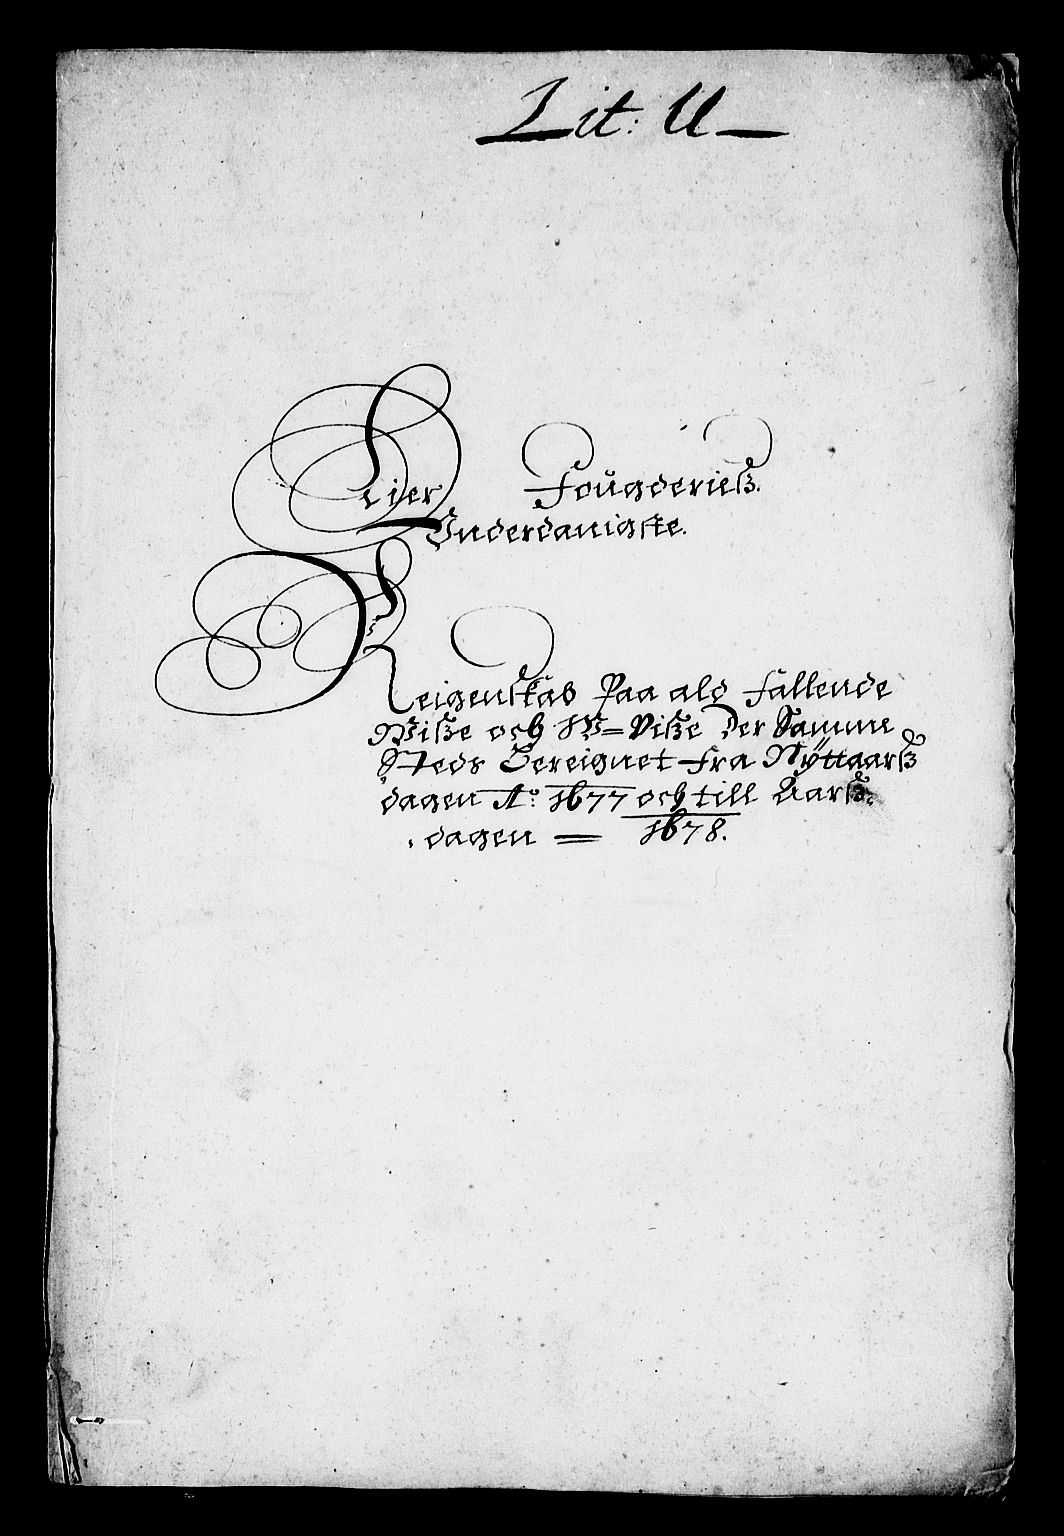 Lit: U
Lier Fougderiesz.
Underdanigste.
Reigenskab Paa ald Fallende
Wisze och W=Visze der Samme
Steds Bereignet fra Nyttaarsz
dagen Ao: 1677 och till Aarsz
dagen = 1678.